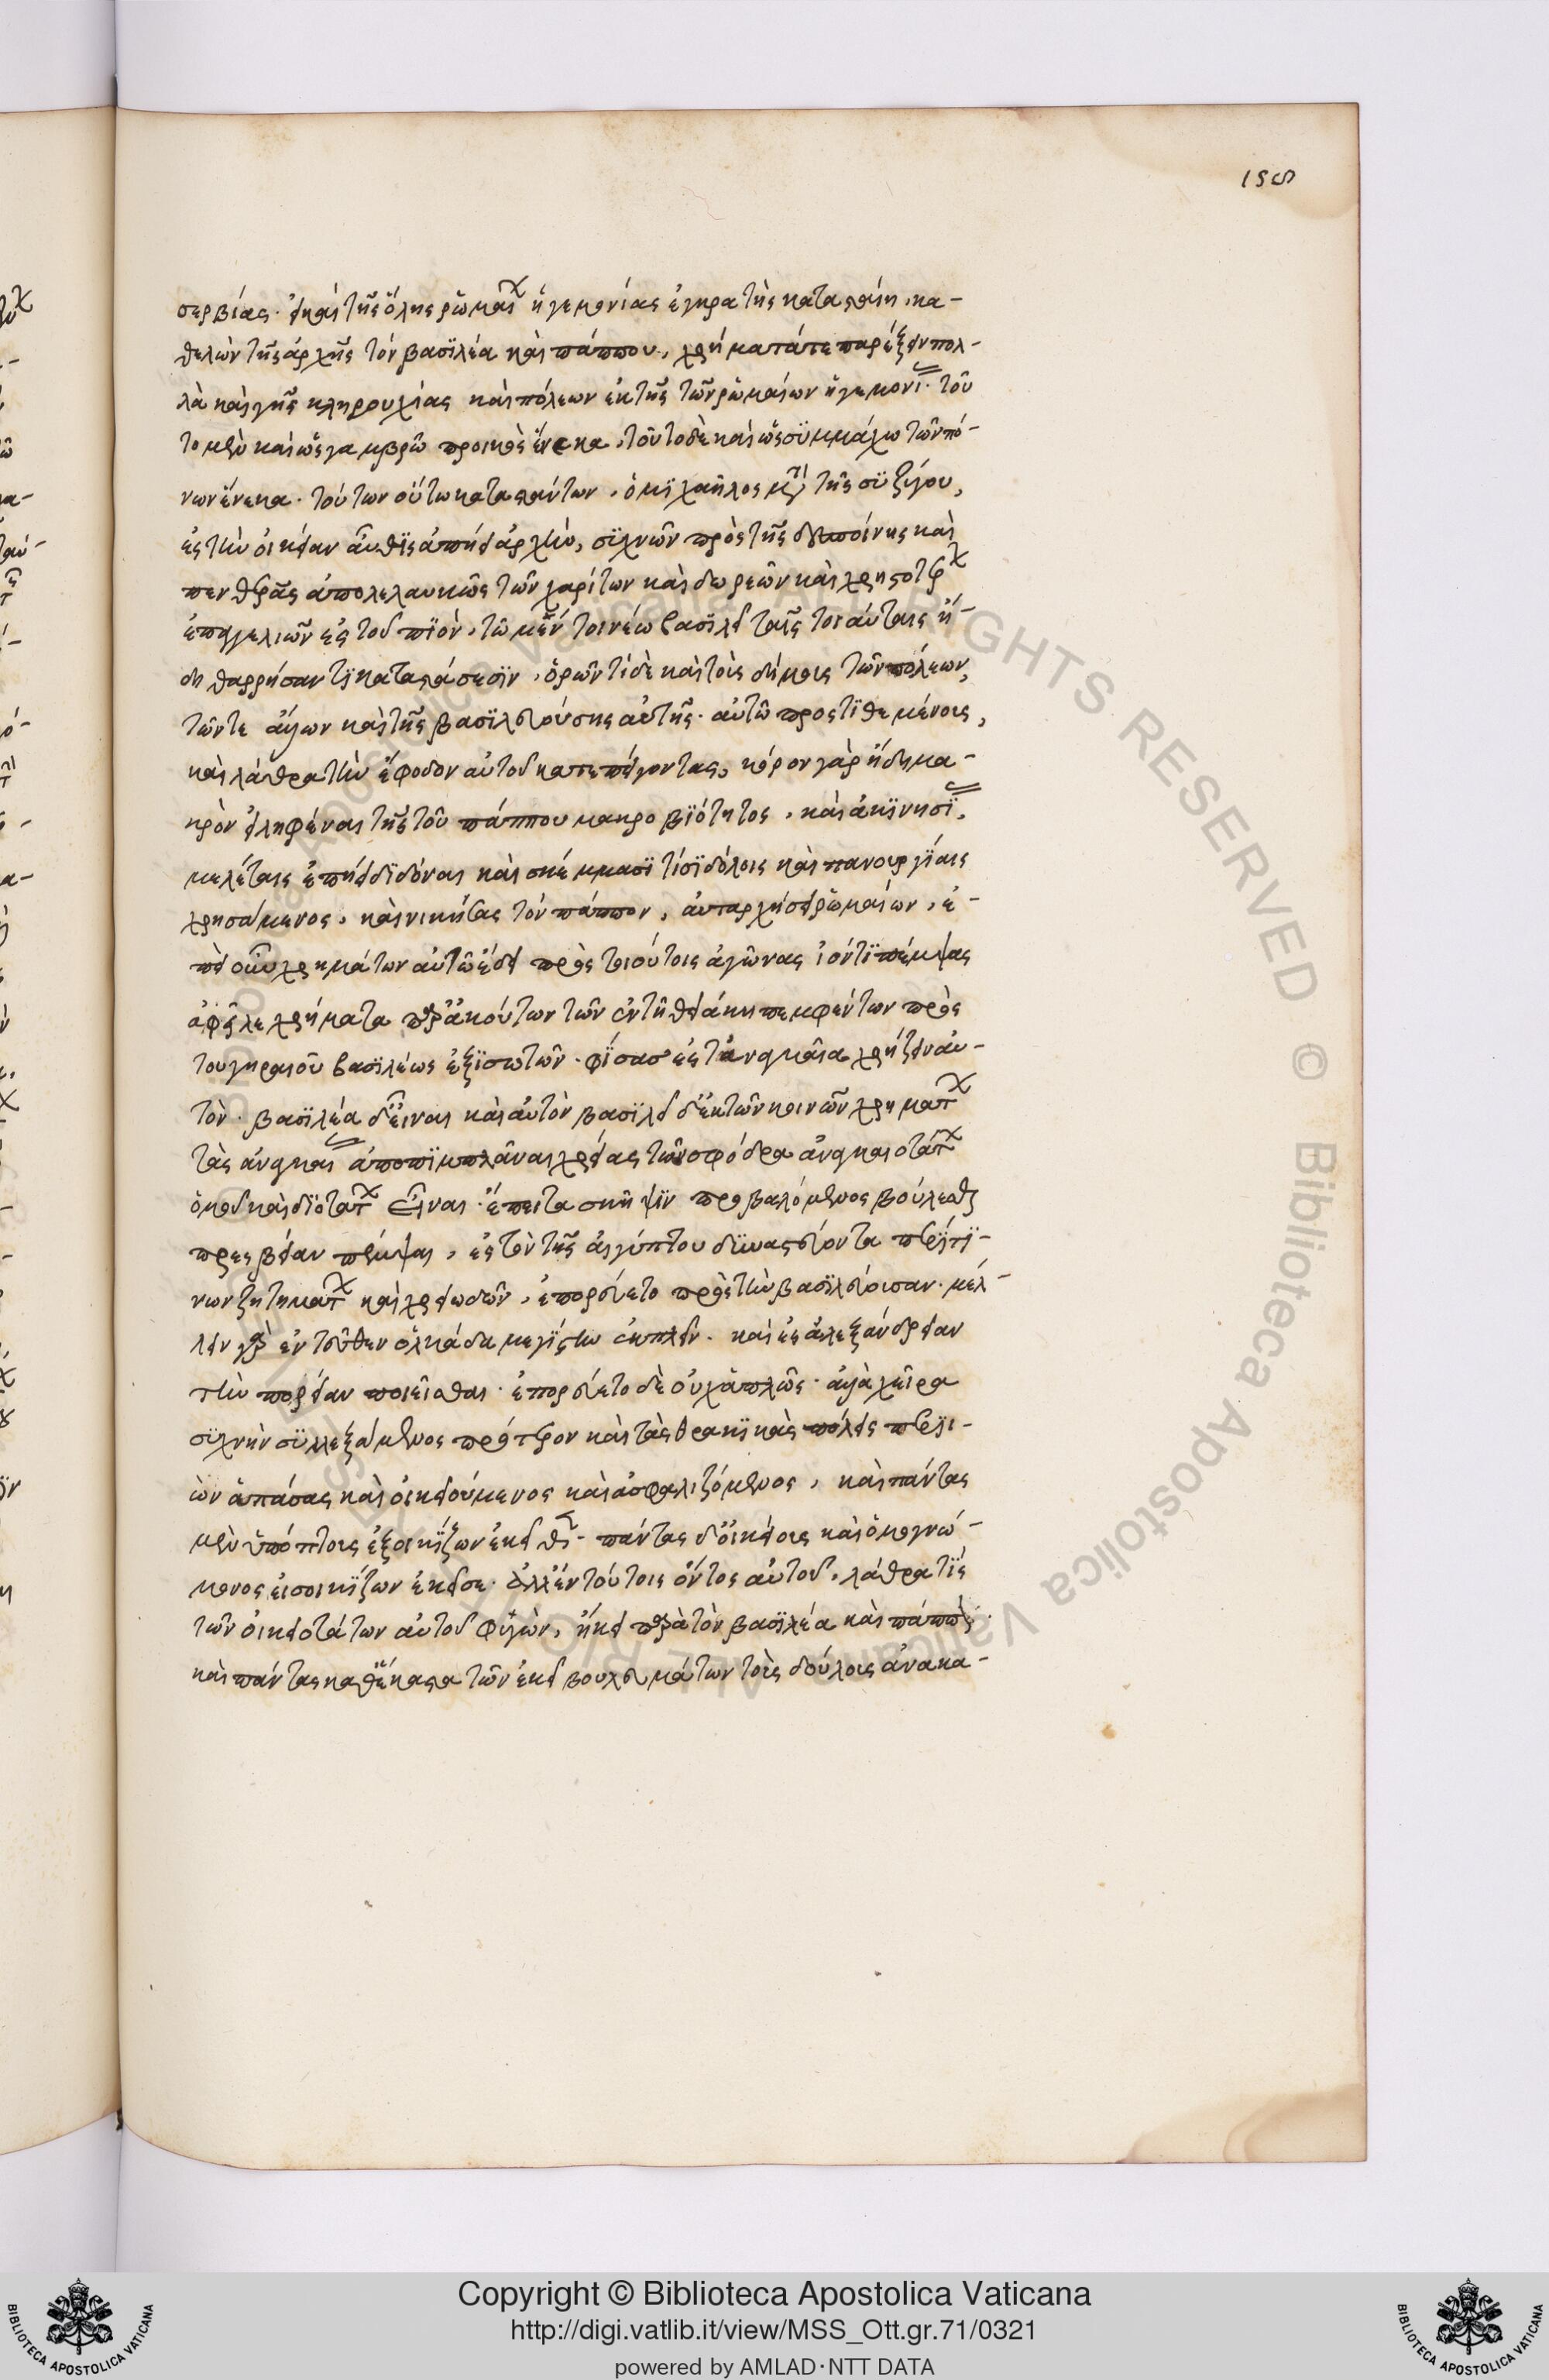 156
σερβίας. εἰ καὶ τῆς ὅλης ῥωμαϊκῆς ἡγεμονίας ἐγκρατὴς κατασταίη, κα-
θελὼν τῆς ἀρχῆς τὸν βασιλέα καὶ πάππον, χρήματά τε παρέξειν πολ-
λὰ καὶ γῆς κληρουχίας καὶ πόλεων ἐκ τῆς τῶν ῥωμαίων ἡγεμονίας. τοῦ
το μὲν καὶ ὡς γαμβρῶ προικὸς ἕνεκα, τοῦτο δὲ καὶ ὡς συμμάχω τῶν πό-
νων ἕνεκα. τούτων οὕτω καταστάντων, ὁ μιχαῆλος μετὰ τῆς συζύγου,
ἐς τὴν οἰκείαν αὖθις ἀπήει ἀρχὴν, συχνῶν πρὸς τῆς δεσποίνης καὶ
πενθερᾶς ἀπολελαυκὼς τῶν χαρίτων καὶ δωρεῶν καὶ χρηστοτέρων
ἐπαγγελιῶν ἐς τοὐπιὸν. τῶ μέν τοι νέω βασιλεῖ ταῖς τοιαύταις ἤ-
δη θαρρήσαντι καταστάσεσιν, ὁρῶντι δὲ καὶ τοῖς δήμοις τῶν πόλεων,
τῶν τε ἄλλων καὶ τῆς βασιλευούσης αὐτῆς. αὐτῶ προστιθεμένοις,
καὶ λάθρα τὴν ἔφοδον αὐτοῦ κατεπείγοντας, κόρον γὰρ ἤδη μα-
κρὸν εἰληφέναι τῆς τοῦ πάππου μακροβιότητος, καὶ ἀκινησίας,
μελέταις ἐπήει διδόναι καὶ σκέμμασί τισι δόλοις καὶ πανουργίαις
χρησάμενος, καὶ νικήσας τὸν πάππον, αὐταρχήσει ῥωμαίων, ἐ-
πεὶ οὖν χρημάτων αὐτῶ ἔδει πρὸς τοιούτοις ἀγῶνας ἰόντι πέμψας
ἀφείλε χρήματα παρ' ἀκούτων τῶν ἐν τῆ θράκη πεμφέντων πρὸς
τοῦ γηραιοῦ βασιλέως ἐξισωτῶν. φήσας ἐς τἀναγκαῖα χρήζειν αὐ-
τὸν. βασιλέα δ' εἶναι καὶ αὐτὸν βασιλεῖ δ' ἐκ τῶν κοινῶν χρημάτων
τὰς ἀναγκαίας ἀποπιμπλᾶναι χρείας τῶν σφόδρα ἀναγκαιοτάτων
ὁμοῦ καὶ δικαιοτάτων εἶναι. ἔπειτα σκῆψιν προβαλόμενος βούλεσθαι
πρεσβείαν πέμψαι, ἐς τὸν τῆς αἰγύπτου δυναστεύοντα περί τι-
νων ζητημάτων καὶ χρειωδῶν, ἐπορεύετο πρὸς τὴν βασιλεύουσαν. μέλ-
λειν γὰρ ἐντεῦθεν ὁλκάδα μεγίστην ἐκπλεῖν. καὶ ἐς ἀλεξάνδρειαν
τὴν πορείαν ποιεῖσθαι. ἐπορεύετο δὲ οὐχ ἁπλῶς. ἀλλὰ χεῖρα
συχνὴν συλλεξάμενος πρότερον καὶ τὰς θρακικὰς πόλεις περιι-
ὼν ἁπάσας καὶ οἰκειούμενος καὶ ἀσφαλιζόμενος, καὶ πάντας
μὲν ὑπόπτους ἐξοικίζων ἐκεῖθεν. πάντας δ' οἰκείους καὶ ὁμογνώ-
μονας εἰσοικίζων ἐκεῖσε. ἀλλ' ἐν τούτοις ὄντος αὐτοῦ, λάθρα τὶς
τῶν οἰκειοτάτων αὐτοῦ φυγὼν, ἥκει παρὰ τὸν βασιλέα καὶ πάππον.
καὶ πάντας καθ' ἕκαστα τῶν ἐκεῖ βουλευμάτων τοῖς δούλοις ἀνακα-
Copyright © Biblioteca Apostolica Vaticana
http://digi.vatlib.it/view/MSS_Ott.gr.71/0321
powered by AMLAD·NTT DATA